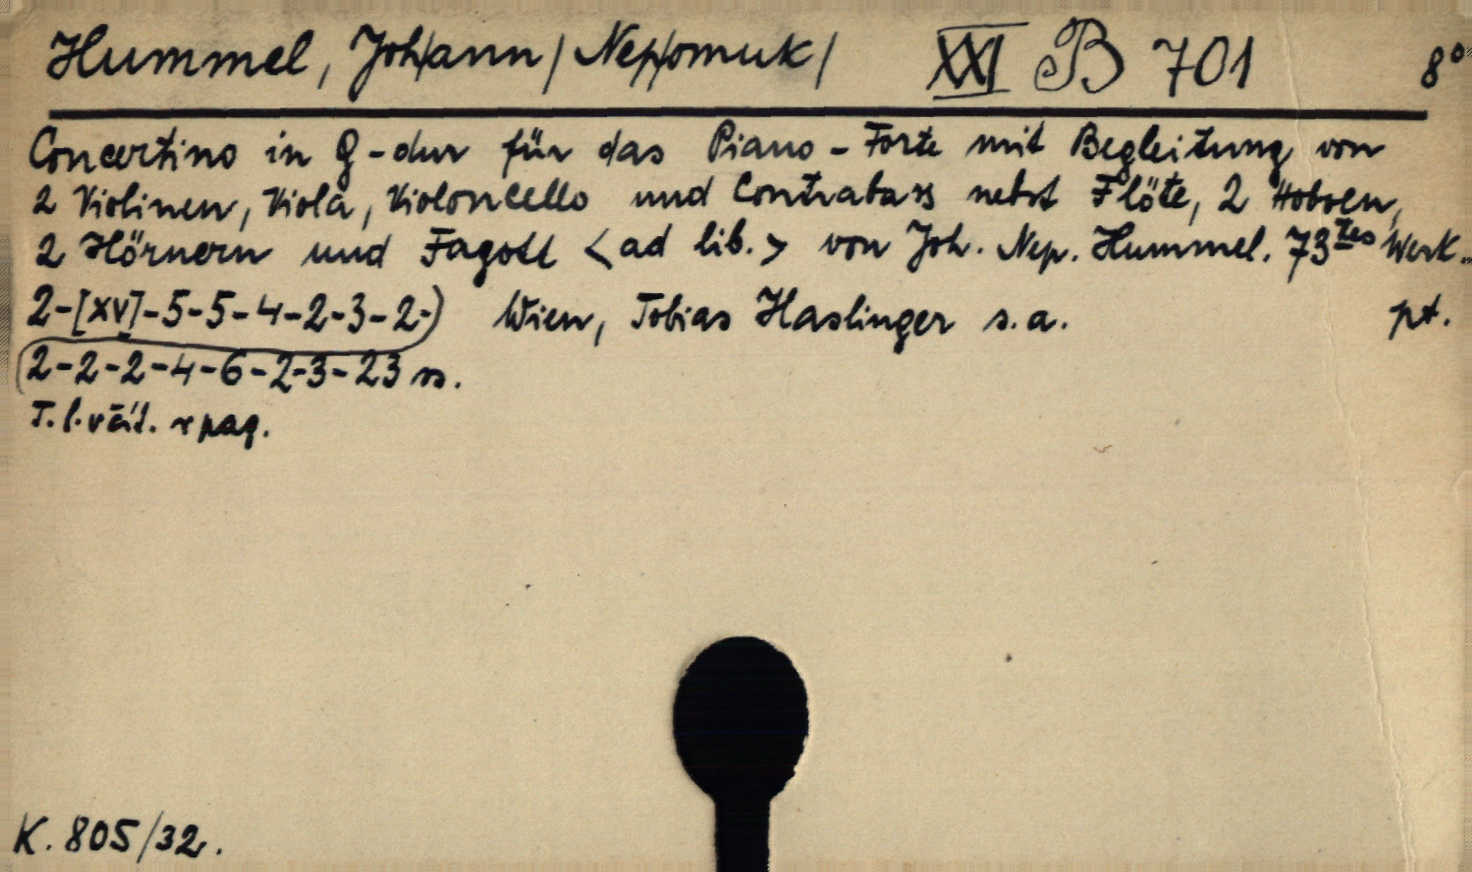 Hummel, Joh/ann/ Nep/omuk/ XXI B 701 8°
Concertino in G-dur für das Piano-Forte mit Begleitung von
2 Violinen, Viola, Violoncello und Contrabass nebst Flöte, 2 Hoboen,
2 Hörnern und Fagott <ad lib.> von Joh. Nep. Hummel. 73tes Werk..
2-[XV]-5-5-4-2-3-2-) Wien, Tobias Haslinger s.a. pt.
(2-2-2-4-6-2-3-23 ss.
T. l. pag.
K. 805/32.